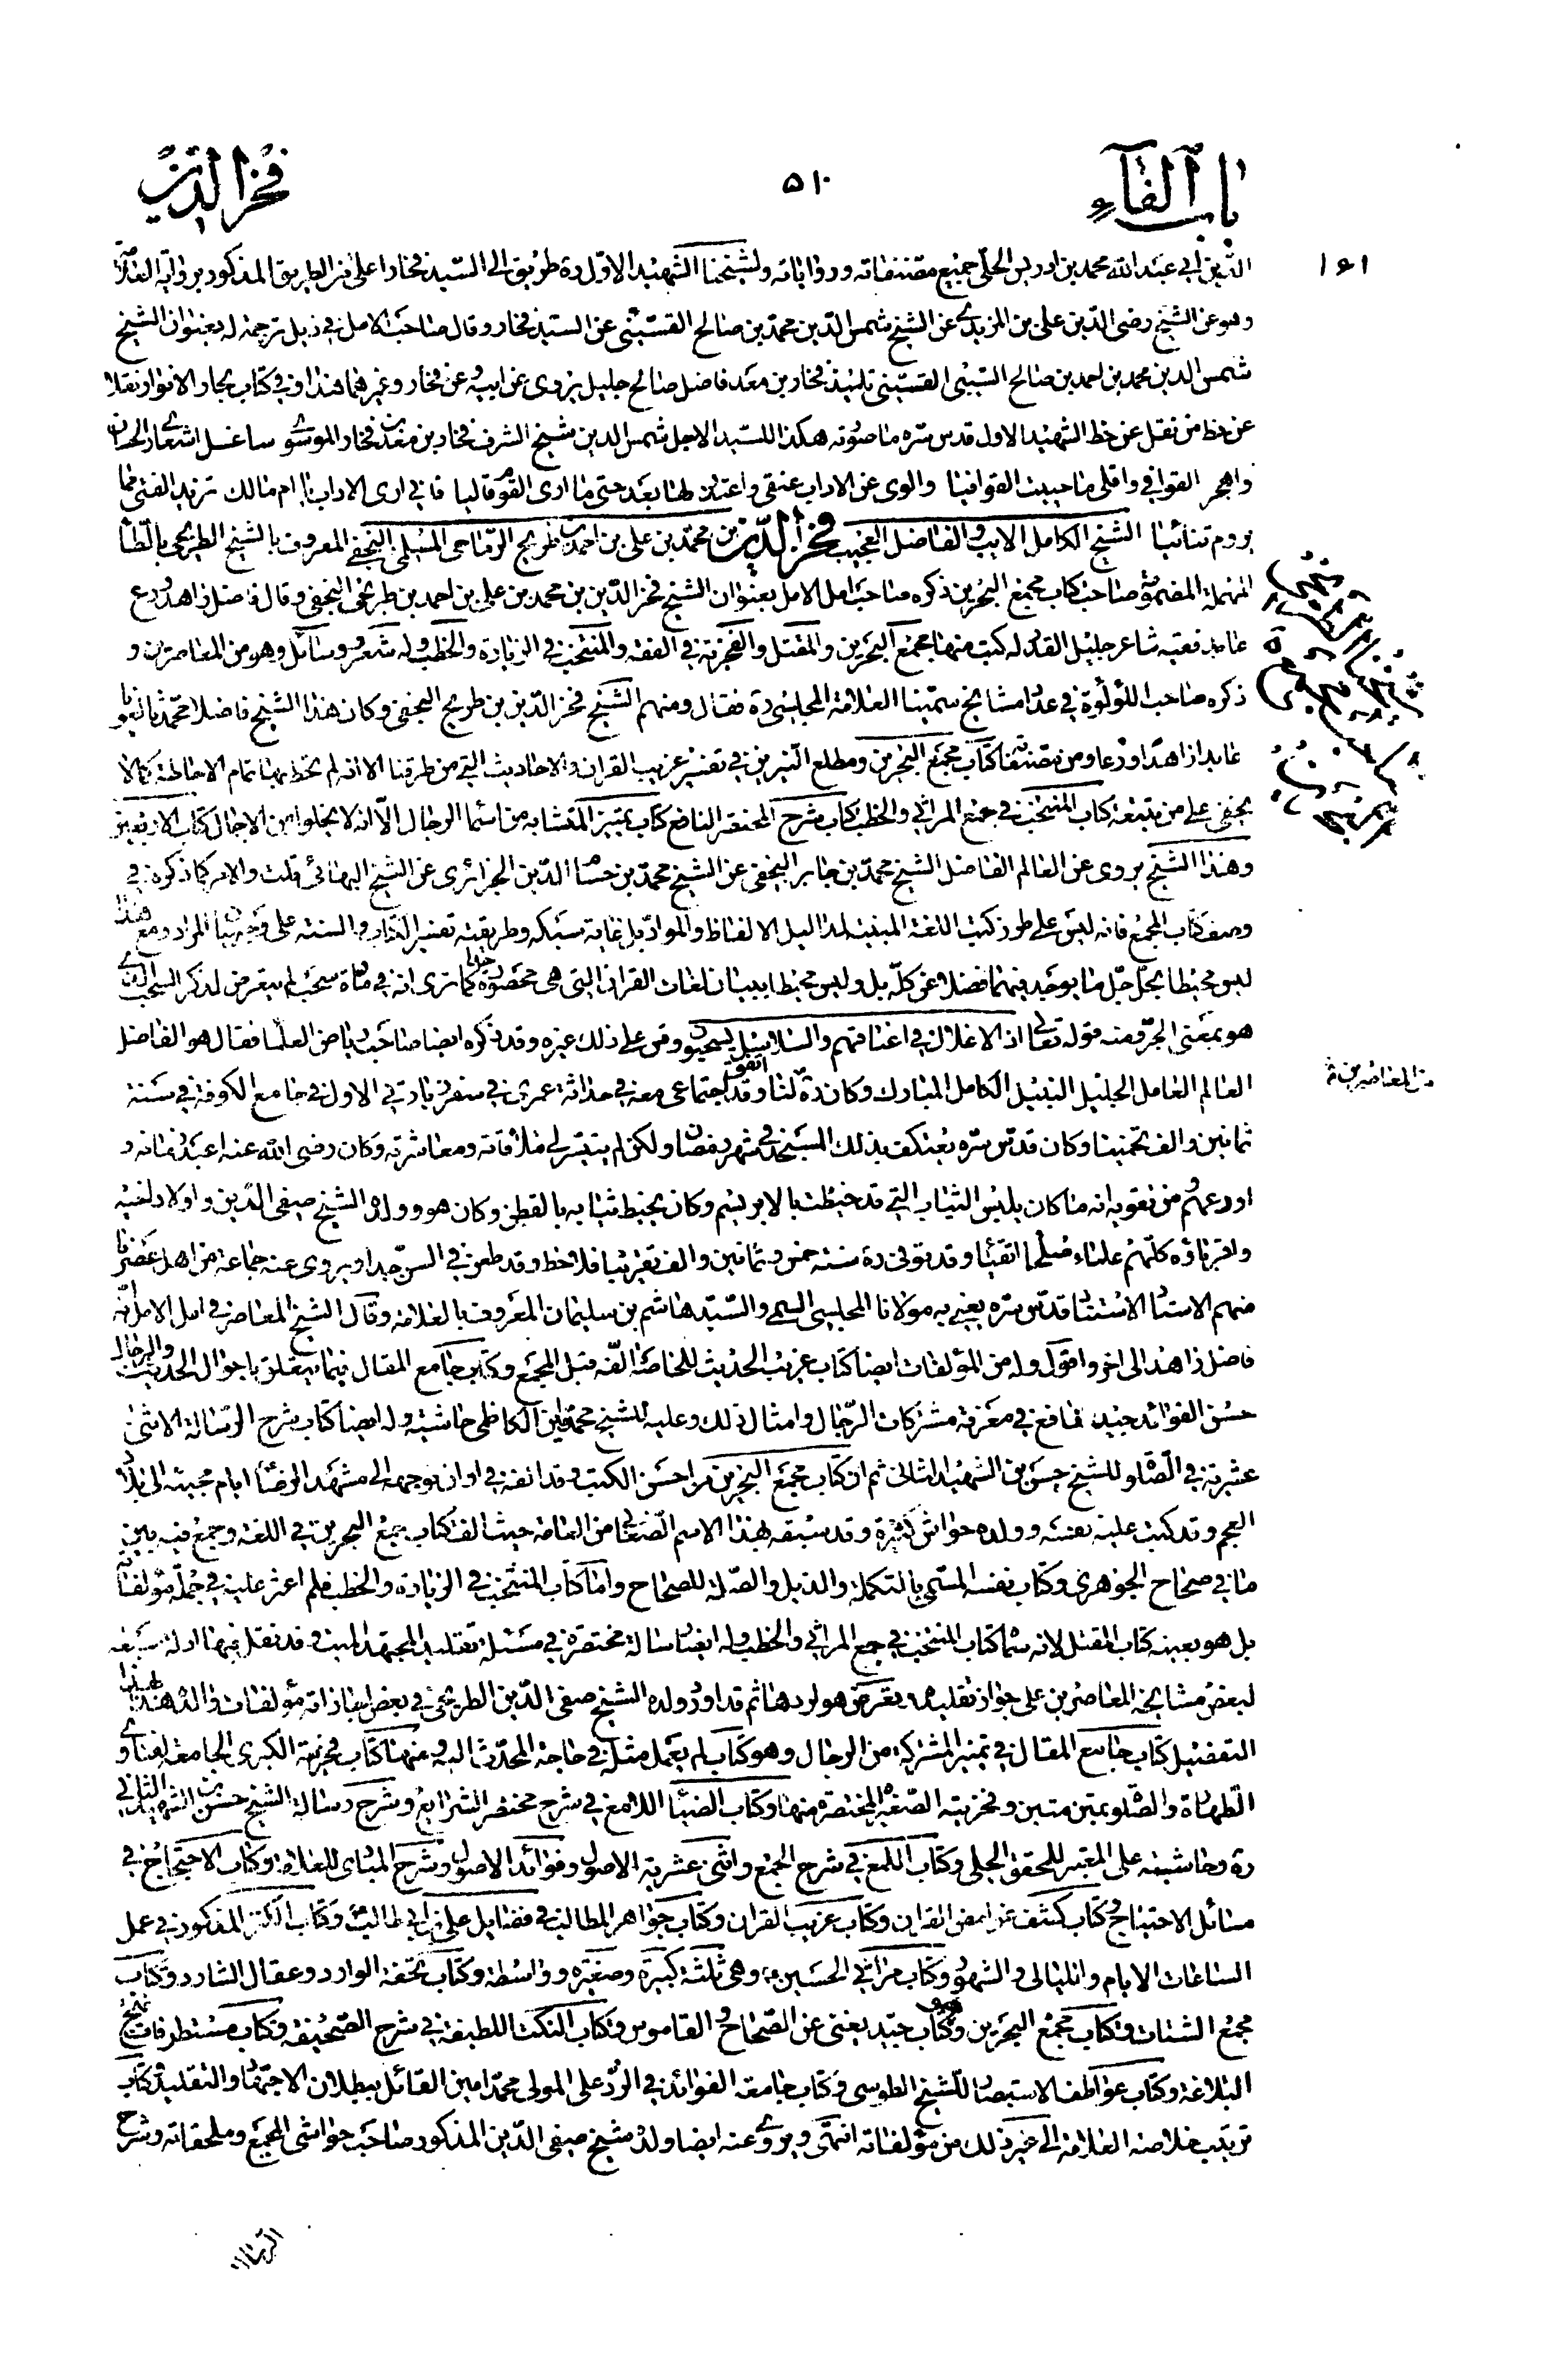 باب الفآء
٥١٠
فخر الدين
الدين أبي عبد الله محمد بن ادريس الحلي جميع مصنفاته ورواياته ولشيخنا الشهيد الاول ره طريق الى السيد فخار اعلى من الطريق المذكور برواية
وهو عن الشيخ رضى الدين على بن المزيدي عن الشيخ شمس الدين محمد بن صالح القسيني عن السيد فخار وقال صاحب الامل في ذيل ترجمة له بعنوان الشيخ
شمس الدين محمد بن احمد بن صالح السيبي القسيني تلميذ فخار بن معد فاضل صالح جليل يروى عن ابيه عن فخار وغيرهما هذا وفي كتاب بحار الانوار نقلا
عن خط من نقل عن خط الشهيد الاول قدس سره ما صورته هكذا للسيد الاجل شمس الدين شيخ الشرف فخار بن معد بن فخار الموسوي ساغسل اشعاري الحسان
واهجر القوافي واقلى ما حييت القوافيا والوى عن الاداب عنقى واعتذر لها بعد حتى ما ارى القوم قاليا فاني ارى الاداب يا ام مالك تزيد الفتى مما
يروم تنائيا الشيخ الكامل الاديب والفاضل العجيب فخر الدين بن محمد بن على بن احمد بن طريح الرماحى المسلمى النجفى المعروف بالشيخ الطريحى بالطاء
المهملة المضمومة صاحب كتاب مجمع البحرين ذكره صاحب امل الامل بعنوان الشيخ فخر الدين بن محمد بن على بن احمد بن طريحى النجفي وقال فاضل زاهد ورع
عابد فقيه شاعر جليل القدر له كتب منها مجمع البحرين والمقتل والفخرية في الفقه والمنتخب في الزيارة والخطب وله شعر ورسائل وهو من المعاصرين و
ذكره صاحب اللؤلؤة في عداد مشايخ سمينا العلامة المجلسي ره فقال ومنهم الشيخ فخر الدين بن طريح النجفى وكان هذا الشيخ فاضلا محدثا لغويا
عابدا زاهدا ورعا ومن مصنفاته كتاب مجمع البحرين ومطلع النيرين في تفسير غريب القران والاحاديث التي من طرقنا الا انه لم يحط بها تمام الاحاطة كما لا
يخفى على من تتبعه كتاب المنتخب في جمع المراثي والخطب كتاب شرح المختصر النافع كتاب تمييز المتشابه من اسماء الرجال الا انه لا يخلوا من الاجمال كتاب الاربعين
وهذا الشيخ يروى عن العالم الفاضل الشيخ محمد بن جابر النجفى عن الشيخ محمد بن حسام الدين الجزائرى عن الشيخ البهائى قلت والامر كما ذكره في
وصف كتاب المجمع فانه ليس على طرز كتب اللغة المبنية لمداليل الالفاظ والمواد بل غاية سبكه وطريقته تفسير الكتاب والسنة على وجه بيان المراد ومع هذا
ليس محيطا بجل ما يوجد فيهما فضلا عن كله بل وليس محيطا ببيان لغات القران التي هي محصورة جدا كما ترى انه في مادة سحب لم يتعرض لذكر السحب الذي
هو بمعنى الجر ومنه قوله تعالى اذ الاغلال في اعناقهم والسلاسل يسحبون وقس على ذلك غيره وقد ذكره ايضا صاحب رياض العلماء فقال هو الفاضل
العالم العامل الجليل النبيل الكامل المبارك وكان ره لنا وقد اتفق اجتماعى معه في حداثة عمرى في سفر زيارتي الاول في جامع الكوفة في سنة
ثمانين والف تخمينا وكان قدس سره يعتكف بذلك المسجد في شهر رمضان ولكن لم يتيسر لي ملاقاته ومعاشرته وكان رضى الله عنه اعبد زمانه و
اورعهم من تقويه انه ما كان يلبس الثياب التي قد خيطت بالابريسم وكان يخيط ثيابه بالقطن وكان هو وولده الشيخ صفى الدين واولاد اخيه
واقرباؤه كلهم علماء صلحاء اتقياء وقد توفى ره سنة خمس وثمانين والف تقريبا فلاحظ وقد طعن في السن جدا ويروى عنه جماعة من اهل عصرنا
منهم الاستاد الاستناد قدس سره يعنى به مولانا المجلسي السمى والسيد هاشم بن سليمان المعروف بالعلامة وقال الشيخ المعاصر في امل الامل انه
فاضل زاهد الى اخره واقول وله من المؤلفات ايضا كتاب غريب الحديث للخاصة الفه قبل المجمع وكتاب جامع المقال فيما يتعلق باحوال الحديث والرجال
حسن الفوائد جيد نافع في معرفة مشتركات الرجال وامثال ذلك وعليه للشيخ محمد امين الكاظمى حاشية وله ايضا كتاب شرح الرسالة الاثنى
عشرية في الصلوة للشيخ حسن بن الشهيد الثانى ثم ان كتاب مجمع البحرين من احسن الكتب وقد الفه في اوان توجهه الى مشهد الرضا ايام مجيئه الى بلاد
العجم وقد كتب عليه بنفسه وولده حواش كثيرة وقد سبقه بهذا الاسم الصغانى من العامة حيث الف كتاب مجمع البحرين في اللغة وجمع فيه بين
ما في صحاح الجوهرى وكتاب نفسه المسمى بالتكملة والذيل والصلة للصحاح واما كتاب المنتخب في الزيارة والخطب فلم اعثر عليه في جملة مؤلفاته
بل هو بعينه كتاب المقتل لانه سماه كتاب المنتخب في جمع المراثي والخطب وله ايضا رسالة مختصرة في مسئلة تقليد المجتهد الميت وقد نقل فيها ادلة
لبعض مشايخه المعاصرين على جواز تقليده وتعرض هو لردها ثم قد اورد ولده الشيخ صفى الدين الطريحى في بعض اجازاته مؤلفات والده هذا بهذا
التفصيل كتاب جامع المقال في تمييز المشتركة من الرجال وهو كتاب لم يعمل مثله في حاجة المحدث اليه ومنها كتاب فخريته الكبرى الجامعة لفتاوى
الطهارة والصلوة بمتن متين وفخريته الصغيرة المختصرة منها وكتاب الضياء اللامع في شرح مختصر الشرايع وشرح رسالة الشيخ حسن بن الشهيد الثاني
ره وحاشيته على المعتبر للمحقق الحلى وكتاب اللمع في شرح الجمع واثنى عشرية الاصول وفوائد الاصول وشرح المبادى للعلامة وكتاب الاحتجاج في
مسائل الاحتياج وكتاب كشف غوامض القران وكتاب غريب القران وكتاب جواهر المطالب في فضايل على بن ابي طالب وكتاب الكنز المذكور في عمل
الساعات الايام والليالى والشهور وكتاب مراثي الحسين ع وهي ثلثة كبيرة وصغيرة وواسطة وكتاب تحفة الوارد وعقال الشارد وكتاب
مجمع الشتات وكتاب مجمع البحرين وهو كتاب جيد يغنى عن الصحاح والقاموس وكتاب النكت اللطيفة في شرح الصحيفة وكتاب مستطرفات نهج
البلاغة وكتاب عواطف الاستبصار للشيخ الطوسى وكتاب جامعة الفوائد في الرد على المولى محمد امين القائل ببطلان الاجتهاد والتقليد وكتاب
ترتيب خلاصة العلامة الى غير ذلك من مؤلفاته انتهى ويروى عنه ايضا ولده شيخ صفى الدين المذكور صاحب حواشى المجمع وملحقاته وشرح